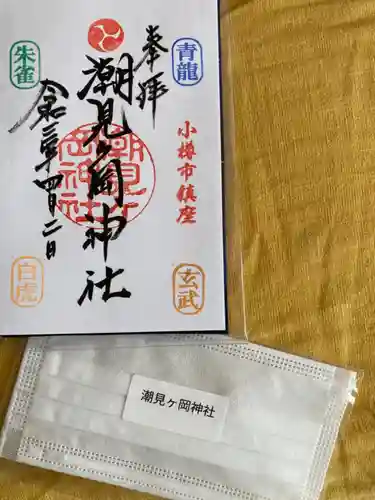 奉拝
青龍
朱雀
潮見ヶ岡神社
潮見ケ岡神社
小樽市鎮座
月二日
白虎
玄武
潮見ヶ岡神社